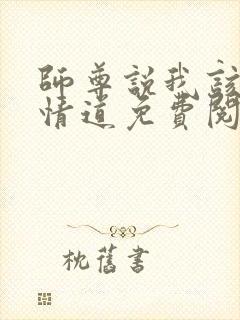 師尊說我該
情道免費閱
枕舊書